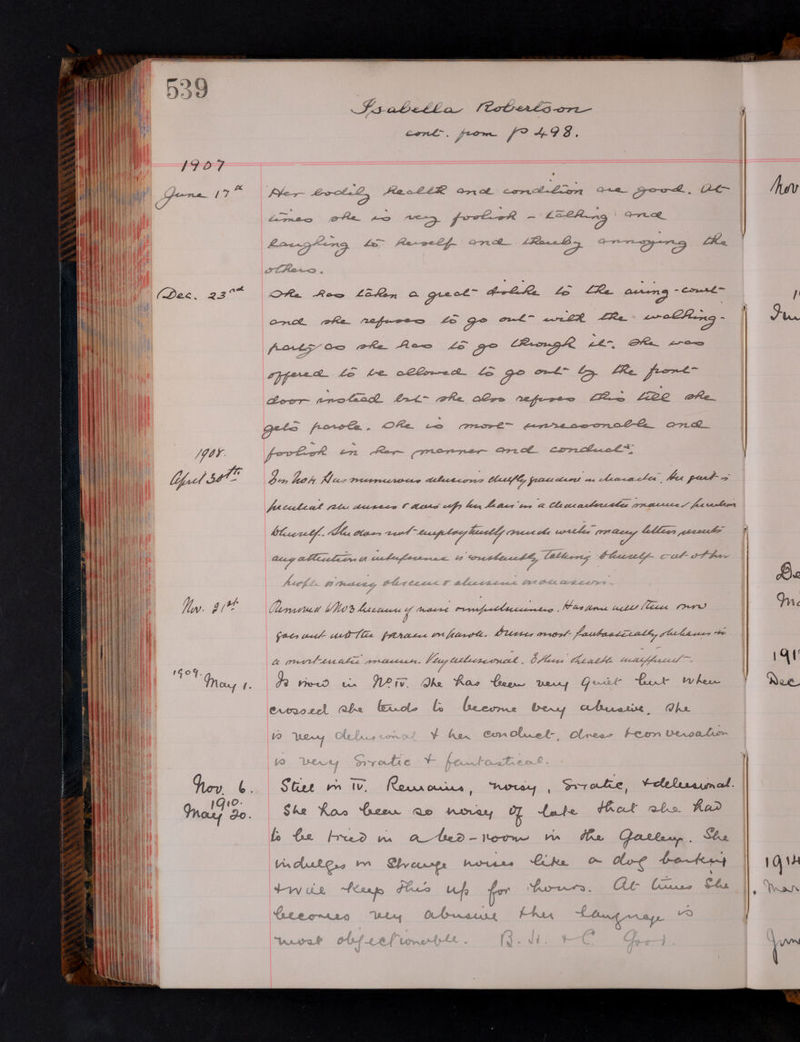 539
Isabella Robertson
cont. from p 498.
1907
June 17th Her bodily health and condition are good. At
times she is very foolish - talking and
laughing to herself and thereby annoying the
others.
Dec. 23rd She has taken a great dislike to the airing-court
and she refuses to go out with the walking-
party as she has to go through it. She was
offered to be allowed to go out by the front
door instead but she also refuses this till she
gets parole. She is most unreasonable and
1908. foolish in her manner and conduct.
April 30th In No 4. Has numerous delusions chiefly grandiose in character, her
peculiar she dresses & does up her hair in a characteristic manner
herself. She does not employ herself much writes many letters resents
any attention or interference is constantly talking to herself
Nov. 21st Removed No 3 because of
goes out with the on parole. Dresses most fantastically
a most erratic manner. Very delusional. health
1909. May 1. Is now in No IV. She has been very quiet but when
crossed she tends to become very abusive. She
is very delusional & her conduct, dress & conversation
is very erratic & fantastical.
Nov. 6. Still in IV. Remains, noisy, erratic, & delusional.
1910.
May 20. She has been so noisy of late that she had
to be tried in a bed-room in the Gallery. She
indulges in strange noises like a dog barking
& will keep this up for hours. At times she
becomes very abusive & her language is
most objectionable. B. H. & C. Good.
Nov
De
191
Dec
1914
Mar